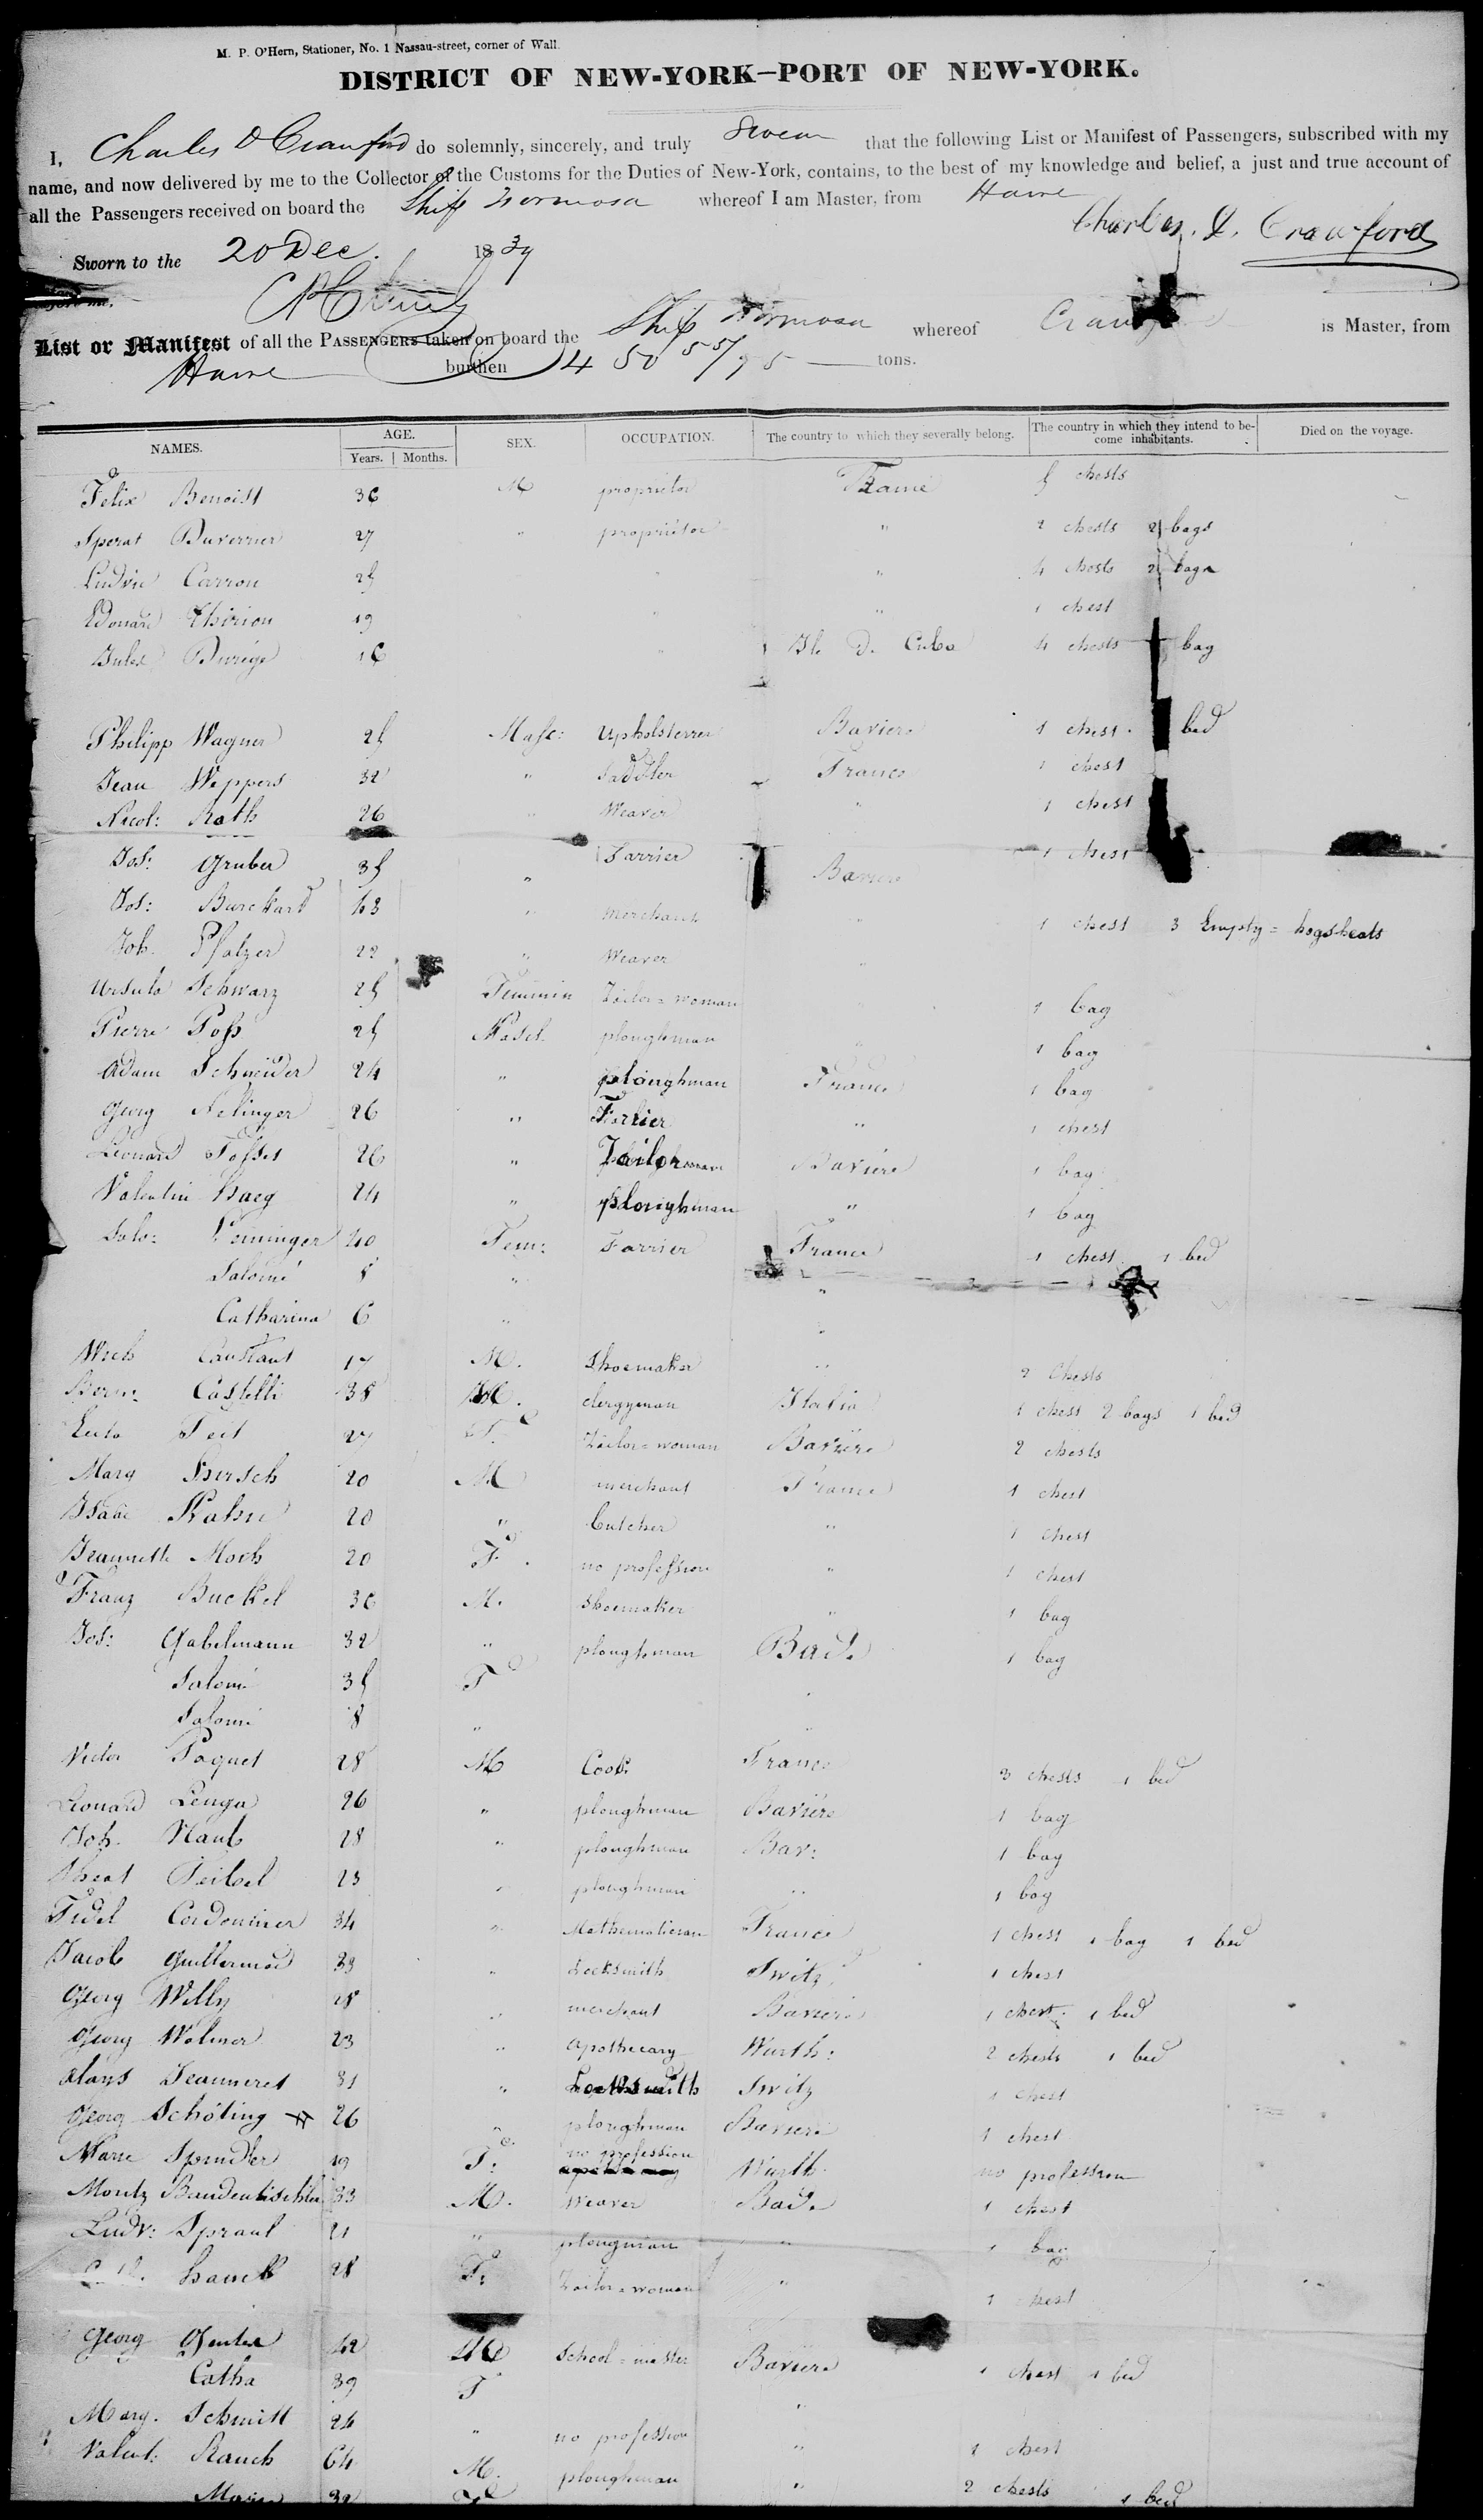 M. P. O'Hern, Stationer, No. 1 Nassau-street, corner of Wall.
DISTRICT OF NEW-YORK—PORT OF NEW-YORK.
I, Charles D Crawford do solemnly, sincerely, and truly swear that the following List or Manifest of Passengers, subscribed with my
name, and now delivered by me to the Collector of the Customs for the Duties of New-York, contains, to the best of my knowledge and belief, a just and true account of
all the Passengers received on board the Ship Formosa whereof I am Master, from Havre
Charles. D. Crawford
Sworn to the 20 Dec. 1839
before me,
List or Manifest of all the PASSENGERS taken on board the Ship Formosa whereof Crawford is Master, from
Havre burthen 450 55/95 tons.
NAMES. AGE. SEX. OCCUPATION. The country to which they severally belong. The country in which they intend to be- Died on the voyage.
Years. Months. come inhabitants.
Felix Benoist 36 M proprietor France 5 chests
Sperat Duverrier 27 " proprietor " 2 chests 2 bags
Ludvic Carron 25 " " 4 chests 2 bags
Edouard Thirion 19 " " 1 chest
Jules Durège 16 " Ile d. Cuba 4 chests bag
Philipp Wagner 25 Masc: Upholsterrer Baviere 1 chest. bed
Jean Weppers 32 " Saddler France 1 chest
Nicol: Rath 26 " Weaver " 1 chest
Jos: Gruber 35 " Farrier Baviere 1 chest
Jos: Burckard 43 " merchant " 1 chest 3 Empty = hogsheads
Joh. Pfalzer 22 " Weaver "
Ursula Schwarz 25 Feminin Tailor=woman " 1 bag
Pierre Poss 25 Mascl. ploughman " 1 bag
Adam Schneider 24 " ploughman France 1 bag
Georg Aclinger 26 " Farrier " 1 chest
Leonard Fosses 26 " Tailor Baviere 1 bag
Valentin Haeg 24 " ploughman " 1 bag
Salo: Leininger 40 Fem: Farrier France 1 chest 1 bed
Salomé 8 " "
Catharina 6 " "
Mich Constant 17 M. Shoemaker " 2 chests
Bern: Castelli 38 M. clergyman Italia 1 chest 2 bags 1 bed
Teit 27 F. Tailor=woman Baviere 2 chests
Marg Hirsch 20 M merchant France 1 chest
Isaac Kahn 20 " butcher " 1 chest
Jeannette Moch 20 F. no profession " 1 chest
Franz Buckel 36 M. Shoemaker " 1 bag
Jos: Gabelmann 32 " ploughman Bade 1 bag
Salomé 35 F "
Salomé 8 " "
Victor Paquet 28 M Cook France 3 chests 1 bed
Leonard Lenga 26 " ploughman Baviere 1 bag
Joh. Naub 28 " ploughman Bav: 1 bag
Theibel 23 " ploughman " 1 bag
Fidel Cordonnier 34 " Mathematician France 1 chest 1 bag 1 bed
Jacob Guillermod 33 " Locksmith Switz. 1 chest
Georg Willy 28 " merchant Baviere 1 chest. 1 bed
Georg Wolmer 23 " apothecary Wurth: 2 chests 1 bed
Aloys Jeanneret 31 " Locksmith Switz 1 chest
Georg Schöting 26 " ploughman Baviere 1 chest
Marie Spindler 19 F: no profession Wurth. no profession
Moritz Baudentistchler 33 M. Weaver Bade 1 chest
Ludv: Spraul 21 " plougman " 1 bag
Hauck 28 F: Tailor=woman " 1 chest
Georg Genter 42 M School=master Baviere 1 chest 1 bed
Catha 39 F "
Marg. Schmitt 24 " no profession " 1 chest
Valent: Rauch 64 M. ploughman " 2 chests 1 bed
Marie 32 F